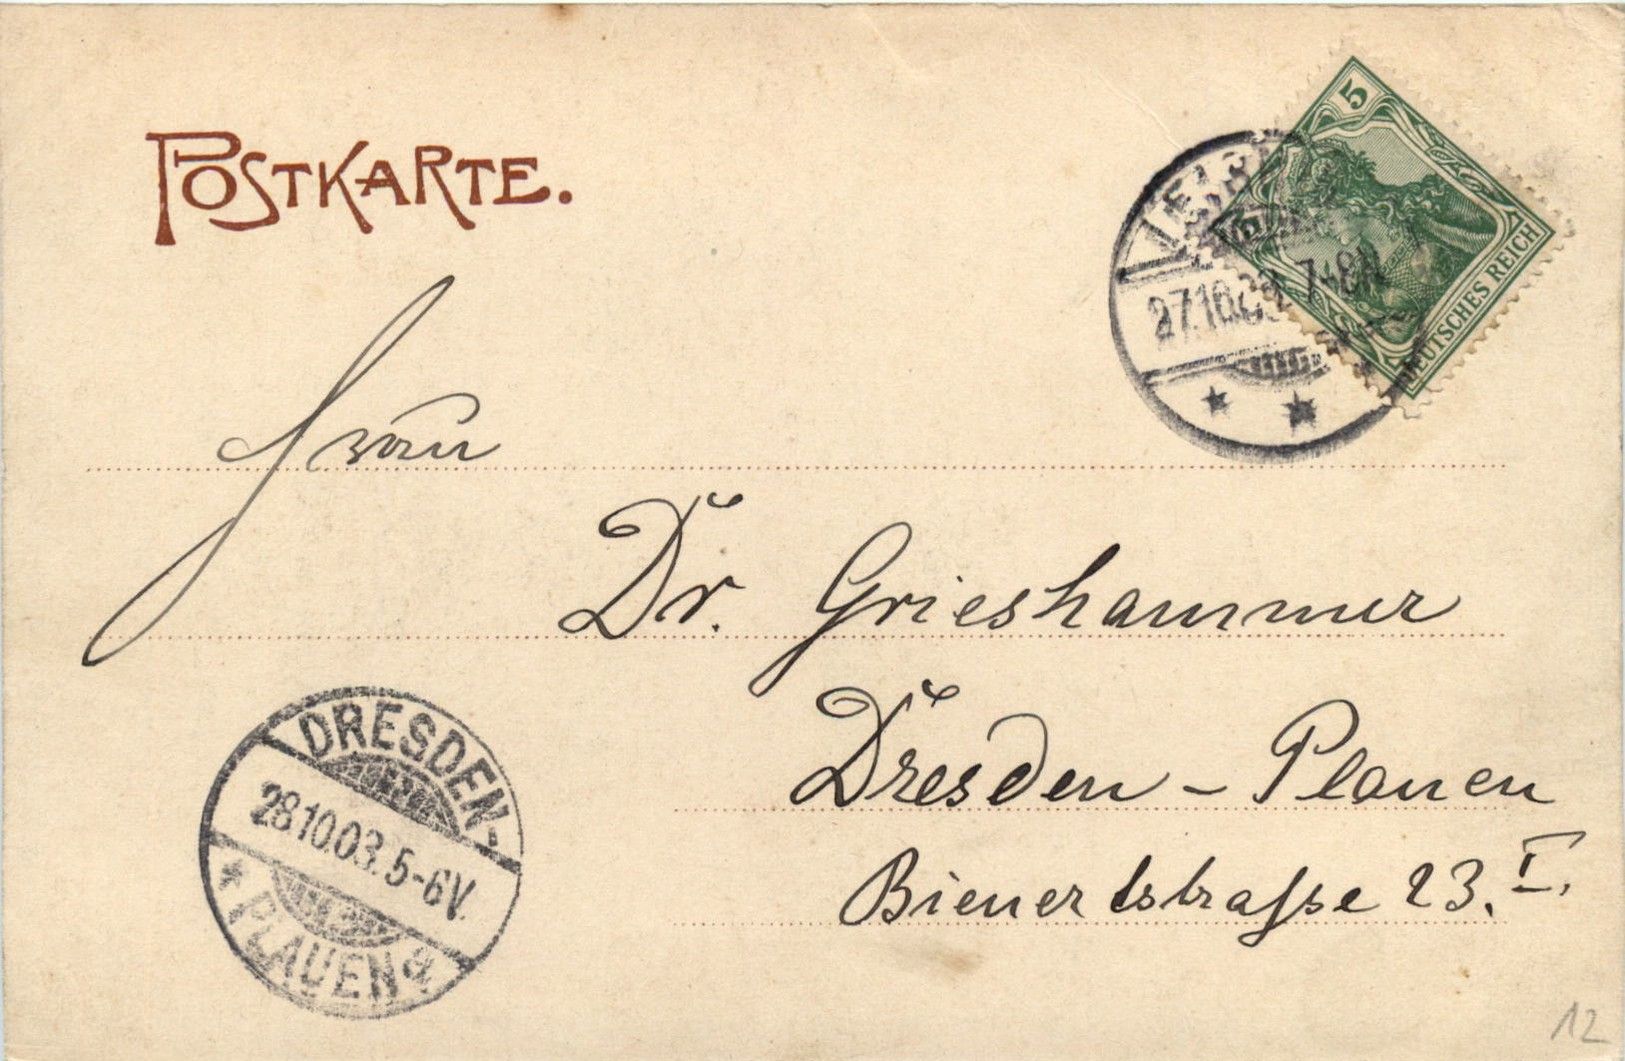 POSTKARTE.
5
DEUTSCHES REICH
27.10.03. 7-8N
Frau
Dr. Grieshammer
Dresden – Plauen
Bienertstraſse 23. I.
DRESDEN-
28.10.03. 5-6V.
* PLAUEN a
12